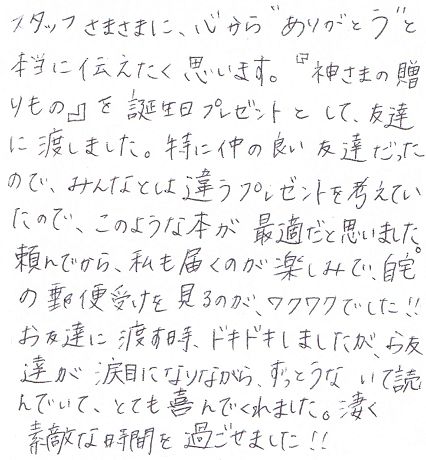 スタッフさまさまに、心から"ありがとう"と
本当に伝えたく思います。『神さまの贈
りもの』を誕生日プレゼントとして、友達
に渡しました。特に仲の良い友達だった
ので、みんなとは違うプレゼントを考えてい
たので、このような本が最適だと思いました。
頼んでから、私も届くのが楽しみで、自宅
の郵便受けを見るのが、ワクワクでした!!
お友達に渡す時、ドキドキしましたが、お友
達が涙目になりながら、ずっとうなずいて読
んでいて、とても喜んでくれました。凄く
素敵な時間を過ごせました!!